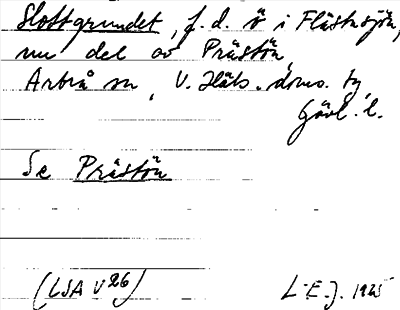 Slottgrundet, f.d. ö i Flästasjön,
nu del av Prästön,
Arbrå sn, V. Häls. doms. tg,
Gävl. l.
Se Prästön
(LSA V26)
L.E.J. 1925